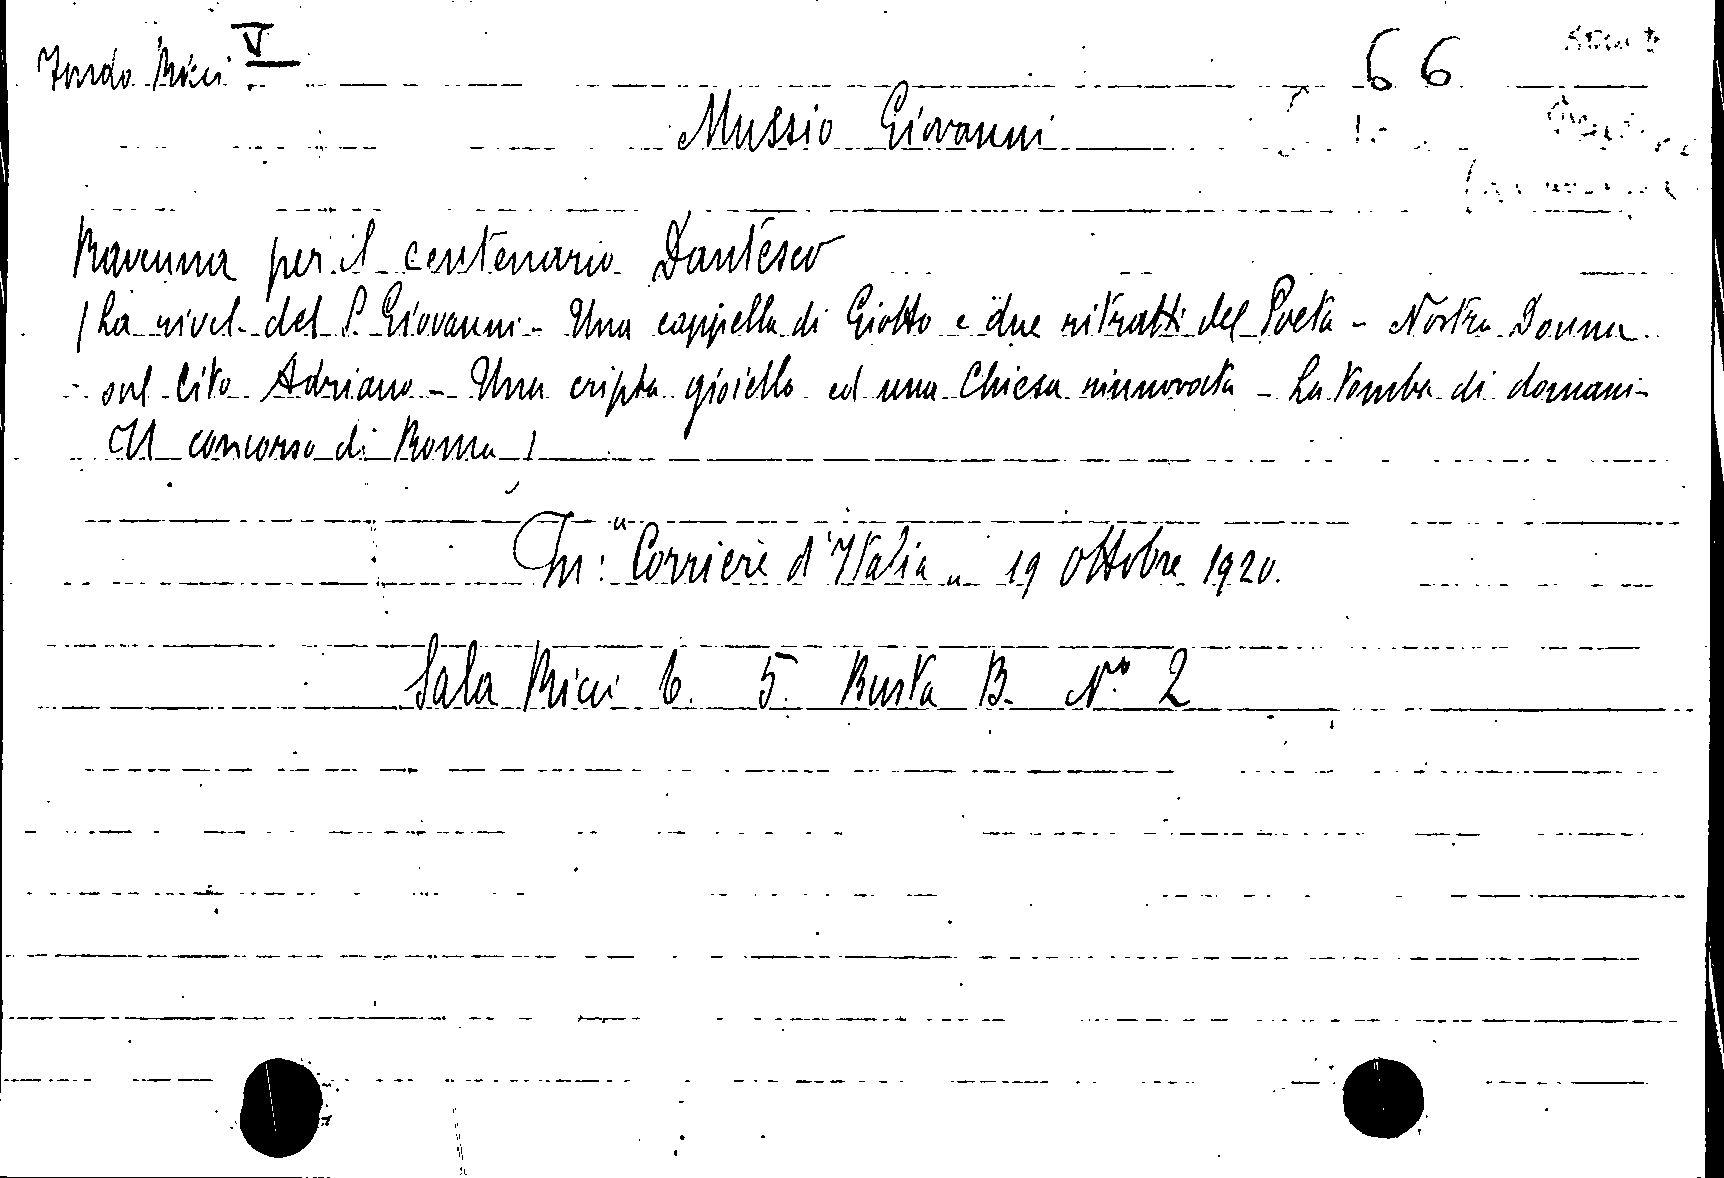 Fondo Ricci V 66
Mussio Giovanni
Ravenna per il centenario Dantesco
(La rivel. del S. Giovanni - Una cappella di Giotto e due ritratti del Poeta - Nostra Donna
sul lito Adriano - Una cripta gioiello ed una Chiesa rinnovata - La tomba di domani -
Il concorso di Roma)
In: "Corriere d'Italia" 19 Ottobre 1920.
Sala Ricci 6. 5. Busta B. N.° 2